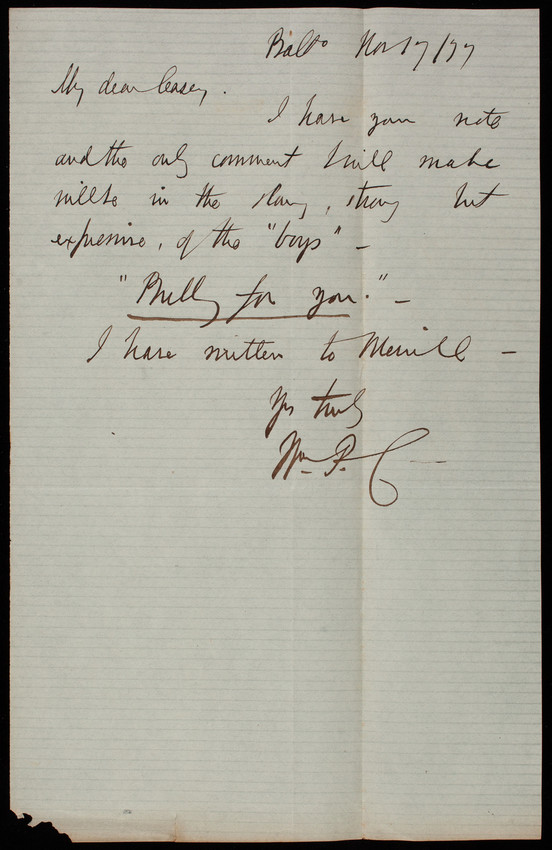 Balto Nov 17/77
My dear Casey.
I have your note
and the only comment I will make
will be in the slang, strong but
expressive, of the "boys" —
"Bully for you." —
I have written to Merrill —
Yrs truly
Wm. P. C—